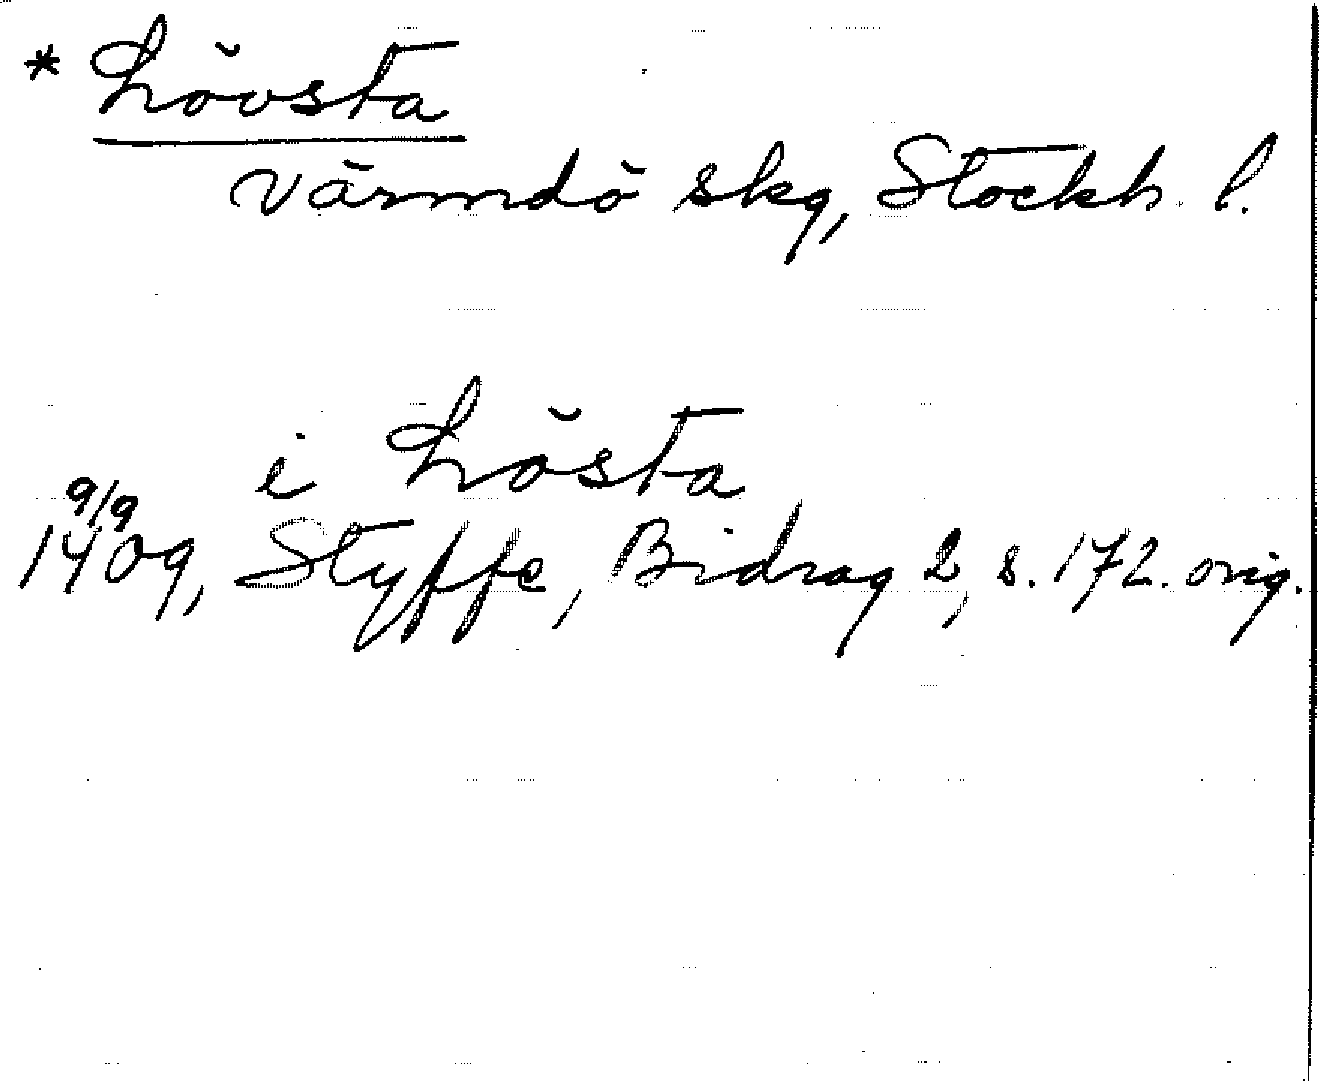 * Lövsta
Värmdö skg, Stockh. l.
i Lösta
9/9
1409, Styffe, Bidrag 2, s. 172. orig.